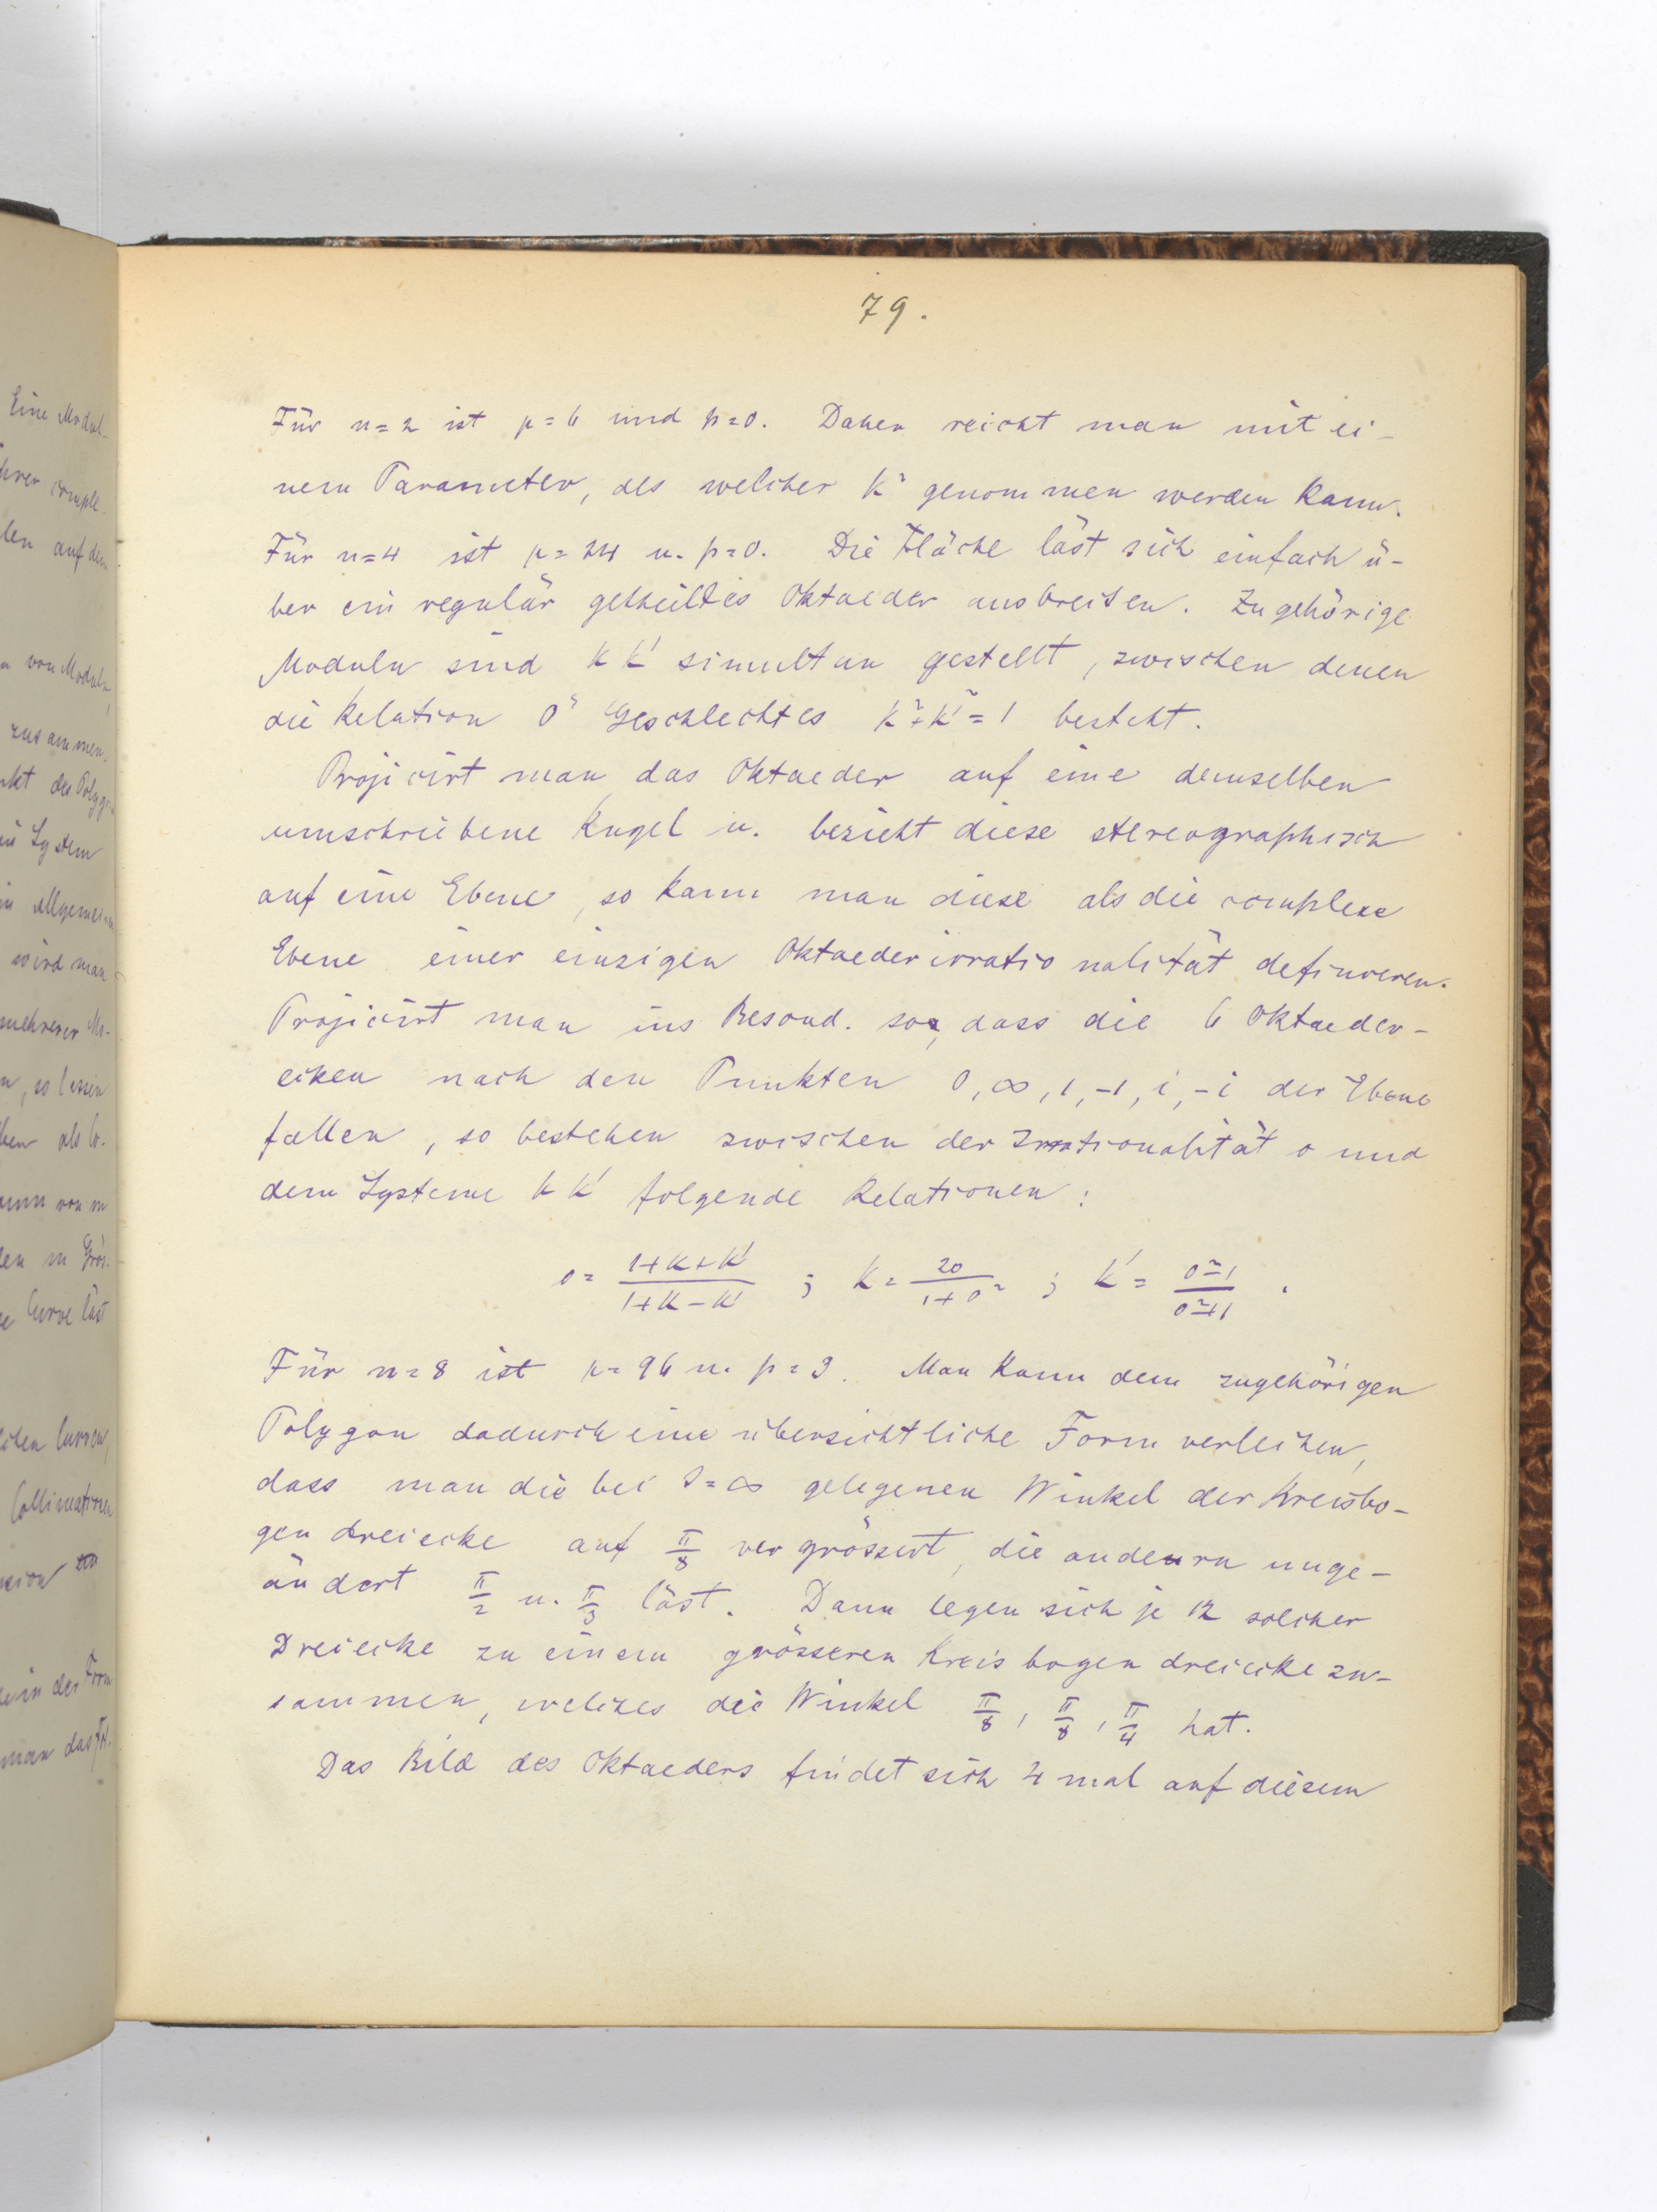 79.
Für n=2 ist μ=6 und p=0. Daher reicht man mit ei-
nem Parameter, als welcher k² genommen werden kann.
Für n=4 ist μ=24 u. p=0. Die Fläche läst sich einfach ü-
ber ein regulär getheiltes Oktaeder ausbreiten. Zugehörige
Moduln sind k k' simultan gestellt, zwischen denen
die Relation 0ⁿ Geschlechtes k²+k'²=1 besteht.
Projicirt man das Oktaeder auf eine demselben
umschriebene Kugel u. bezieht diese stereographisch
auf eine Ebene, so kann man diese als die complexe
Ebene einer einzigen Oktaederirrationalität definieren.
Projicirt man ins Besond. so, dass die 6 Oktaeder-
ecken nach den Punkten 0, ∞, 1, -1, i, -i der Ebene
fallen, so bestehen zwischen der Irrationalität o und
dem Systeme k k' folgende Relationen:
o = (1+k+k')/(1+k-k') ; k = 2o/(1+o²) ; k' = (o²-1)/(o²+1) .
Für n=8 ist μ=96 u. p=3. Man kann dem zugehörigen
Polygon dadurch eine übersichtliche Form verleihen,
dass man die bei J=∞ gelegenen Winkel der Kreisbo-
gendreiecke auf π/8 vergrössert, die anderen unge-
ändert π/2 u. π/3 läst. Dann legen sich je 12 solcher
Dreiecke zu einem grösseren Kreisbogendreiecke zu-
sammen, welches die Winkel π/8, π/8, π/4 hat.
Das Bild des Oktaeders findet sich 4 mal auf diesem